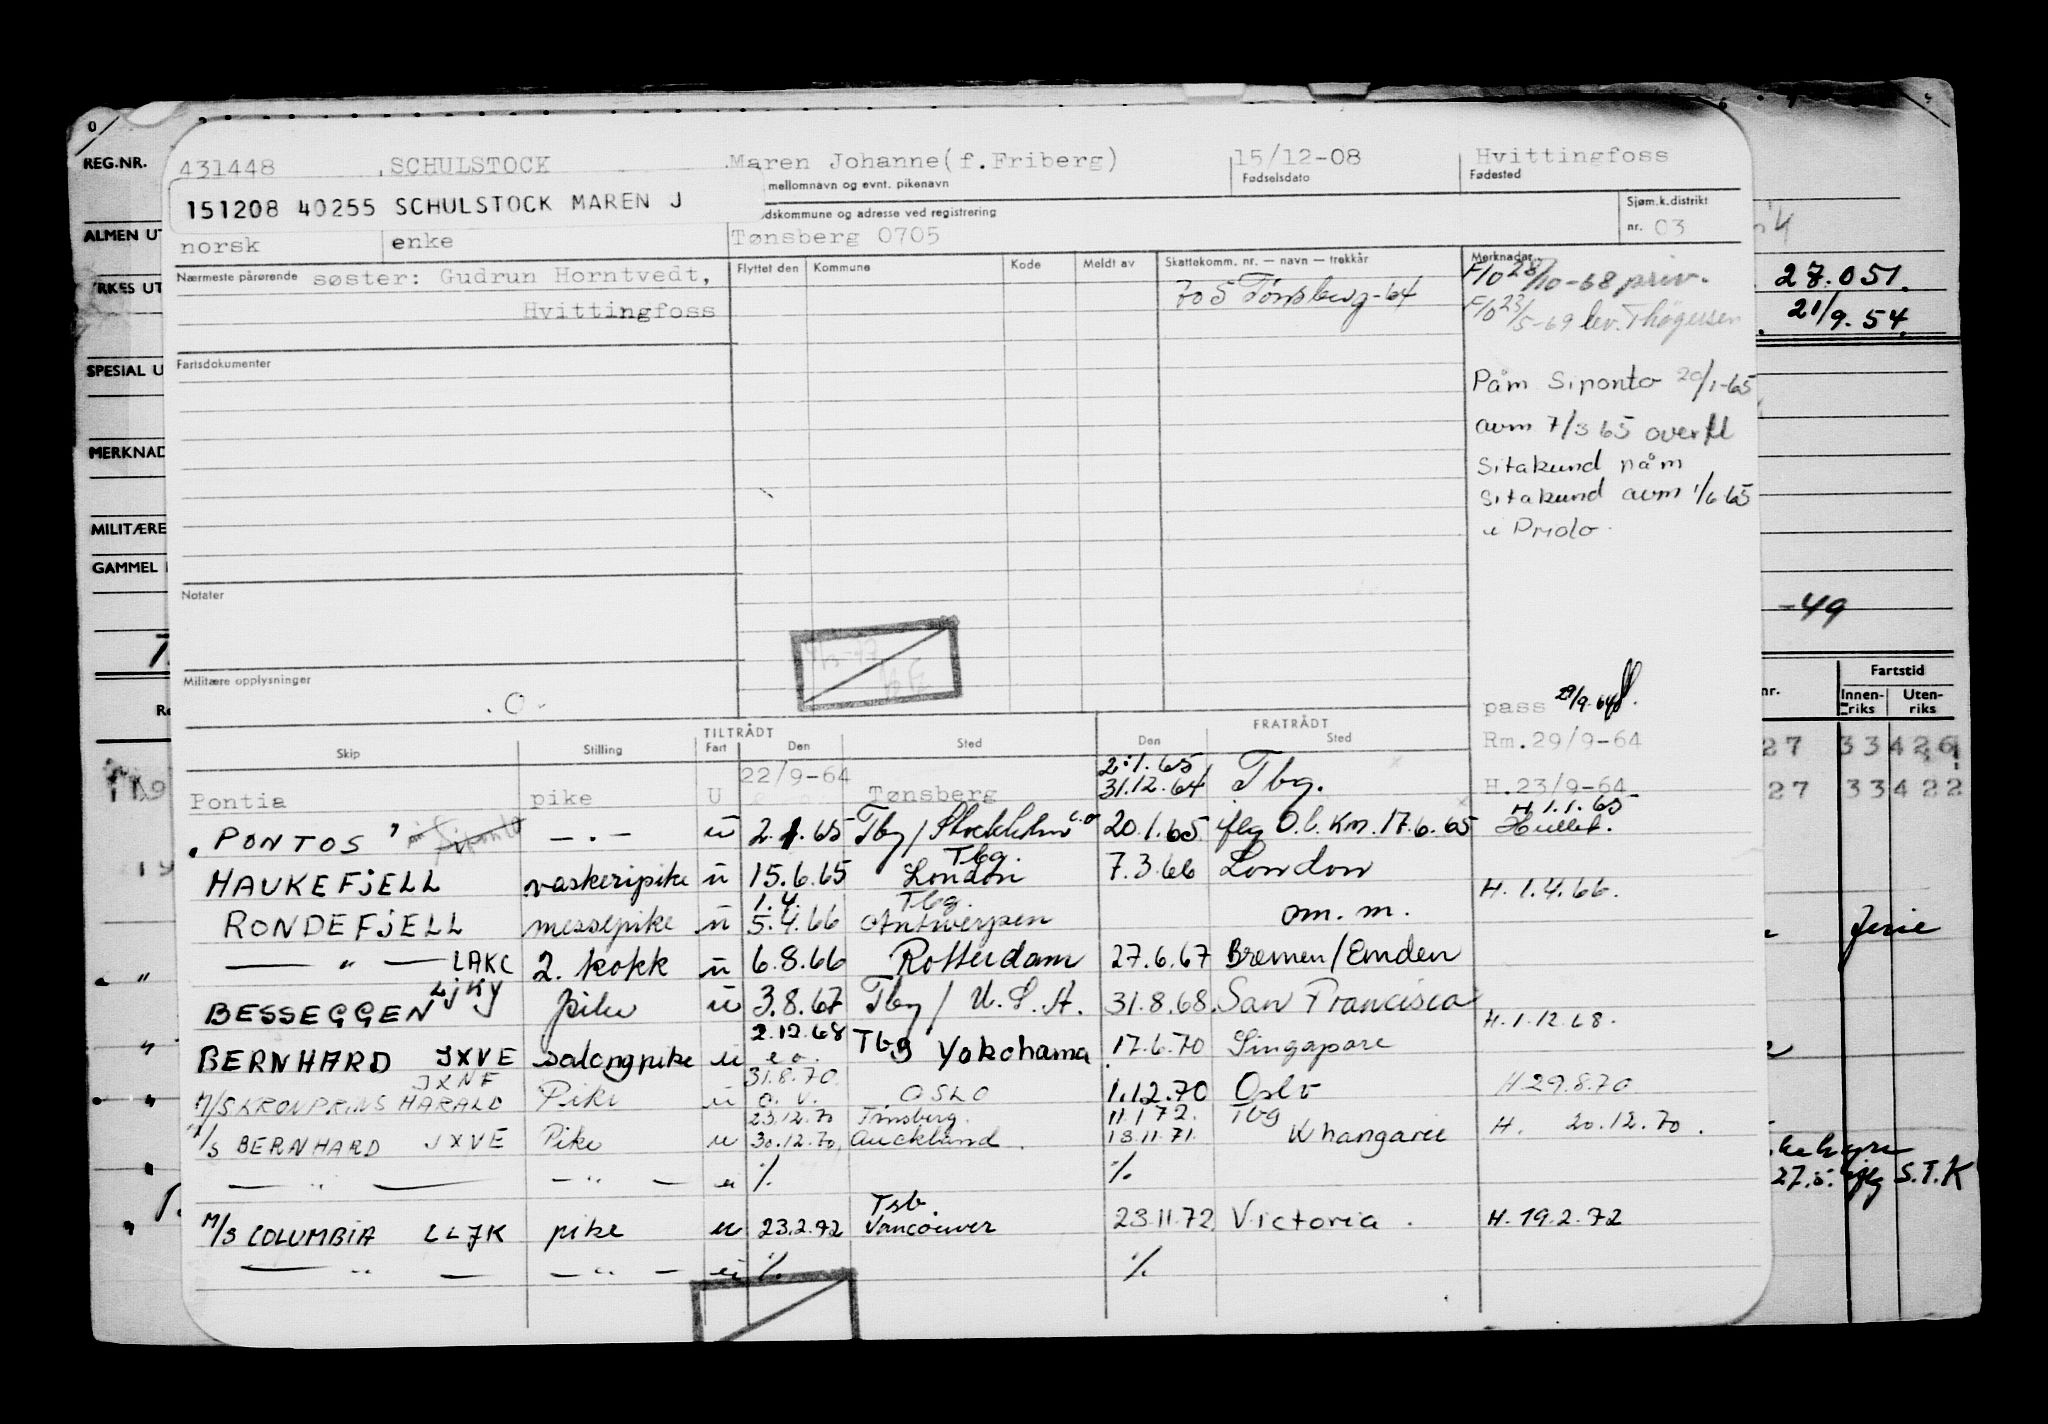 REG.NR. 431448 SCHULSTOCK Maren Johanne(f.Friberg) 15/12-08 Hvittingfoss
mellomnavn og evnt. pikenavn Fødselsdato Fødested
151208 40255 SCHULSTOCK MAREN J
dskommune og adresse ved registrering Sjøm.k.distrikt
ALMEN UT norsk enke Tønsberg 0705 nr. 03
Nærmeste pårørende søster: Gudrun Horntvedt, Flyttet den Kommune Kode Meldt av Skattekomm. nr. — navn — trekkår Merknader
RKES UT F/O 28/10-68 priv. 27.051.
Hvittingfoss 705 Tønsberg-64
F/O 23/5-69 lev. Thøgersen 21/9.54.
SPESIAL U Fartsdokumenter
Påm Siponto 20/1-65
avm 7/3 65 overfl
MERKNAD
Sitakund påm
Sitakund avm 1/6 65
MILITÆRE
i Priolo.
GAMMEL
Notater -49
7.
Militære opplysninger
. O -
pass 29/9-64
Fartstid
nr. Innen-riks Uten-riks
TILTRÅDT FRATRÅDT
Skip Stilling Fart Den Sted Den Sted
Rm.29/9-64 27 33426
22/9-64 2.1.65
Pontia pike U Tønsberg 31.12.64 Tbg. H.23/9-64 27 33422
H 1.1.65
"PONTOS" Siponto — . — u 2.1.65 Tbg/Stockholm e.o 20.1.65 iflg O.b. Km. 17.6.65
Tbg.
HAUKEFJELL vaskeripike u 15.6.65 London 7.3.66 London H. 1.4.66.
1.4. Tbg.
RONDEFJELL messepike u 5.4.66 Antwerpen om. m. ferie
— " — LAKC 2. kokk u 6.8.66 Rotterdam 27.6.67 Bremen/Emden
BESSEGGEN LJKY pike u 3.8.67 Tbg/U.S.A. 31.8.68. San Francisco
H. 1.12.68.
2.12.68
BERNHARD JXVE salongpike u e.o. Tbg Yokohama 17.6.70 Singapore
JXNF 31.8.70.
M/S KRONPRINS HARALD Pike u o.v. OSLO 1.12.70 Oslo H 29.8.70
23.12.70 Tønsberg. 11.1 72. Tbg
M/S BERNHARD JXVE Pike u 30.12.70, Auckland. 18.11.71. Whangarei H. 20.12.70.
— " — — " — u % %
27.5. iflg S.T.K
Tsb.
M/S COLUMBIA LLJK pike u 23.2.72 Vancouver 23.11.72 Victoria. H. 19.2.72
— " — — " — u % %